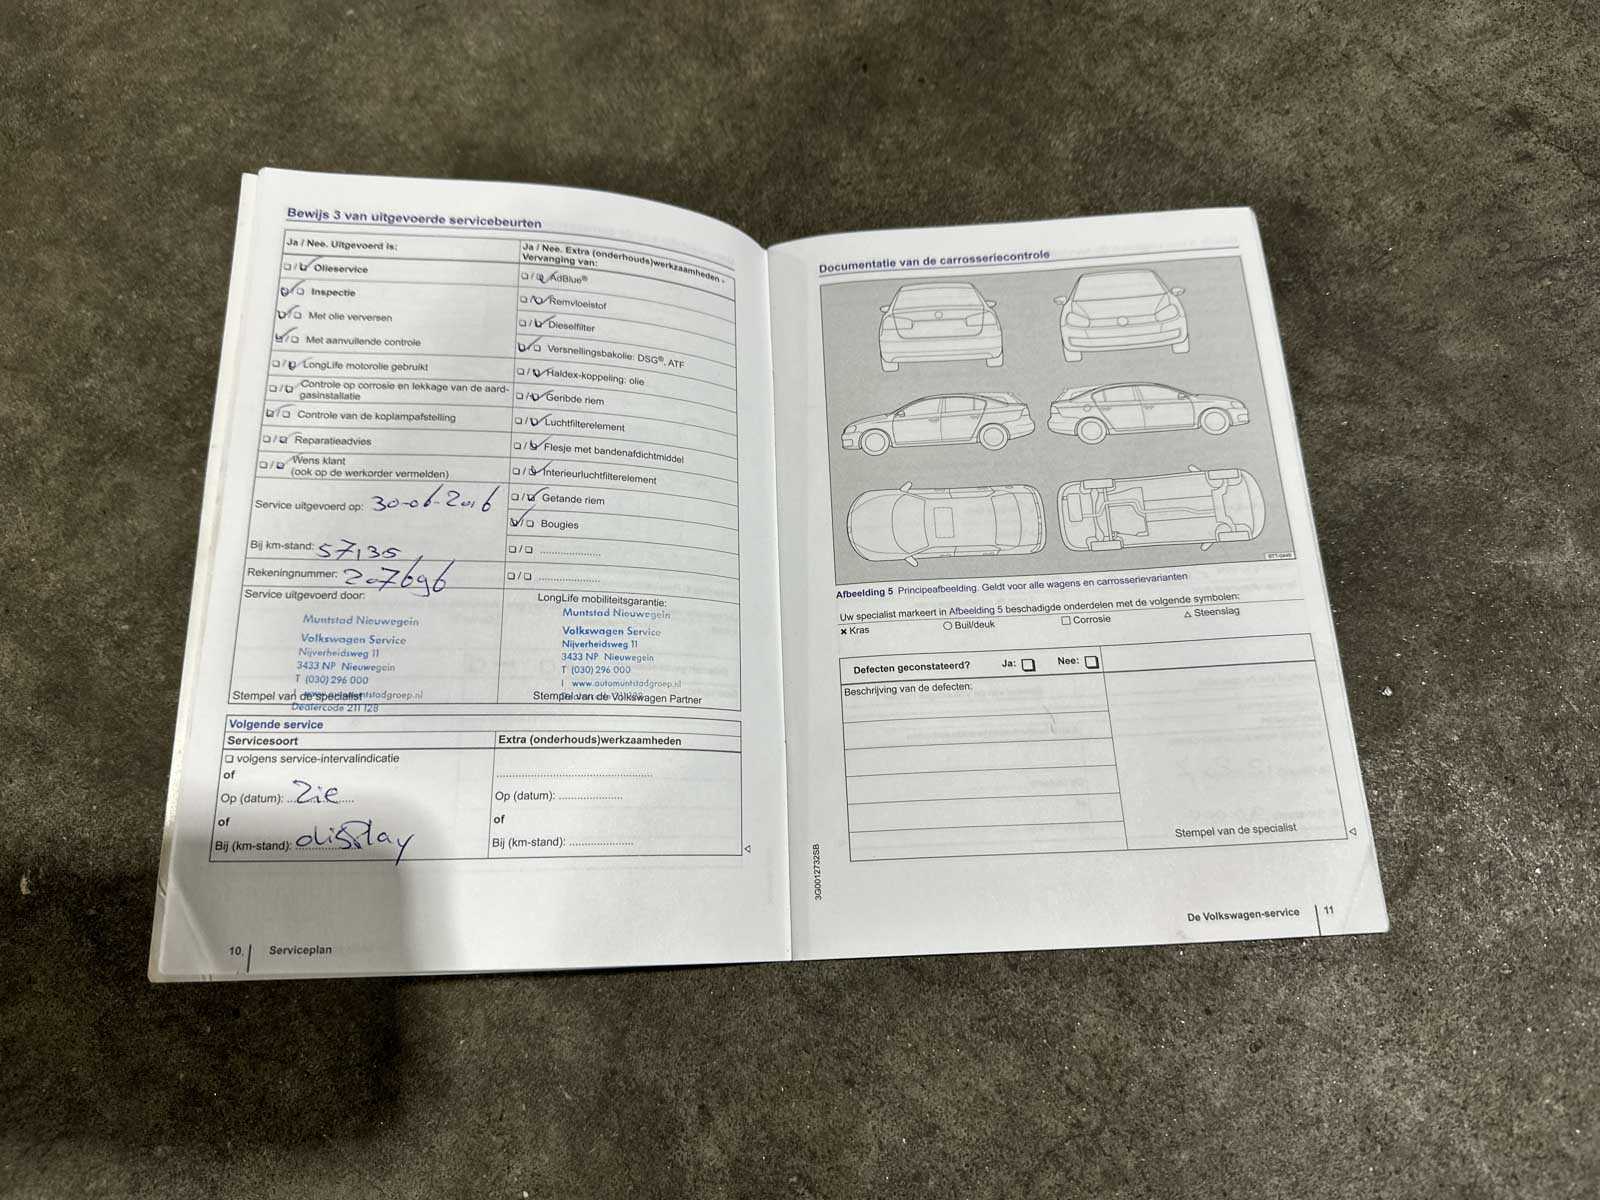 Bewijs 3 van uitgevoerde servicebeurten
Ja / Nee. Uitgevoerd is:
Olieservice
Inspectie
Met olie verversen
Met aanvullende controle
LongLife motorolie gebruikt
Controle op corrosie en lekkage van de aard-
gasinstallatie
Controle van de koplampafstelling
Reparatieadvies
Wens klant
(ook op de werkorder vermelden)
Service uitgevoerd op: 30-06-2016
Bij km-stand:
Rekeningnummer: 207696
Service uitgevoerd door:
Muntstad Nieuwegein
Volkswagen Service
Nijverheidsweg 11
3433 NP Nieuwegein
T (030) 296 000
Stempel van de specialist
Dealercode 211 128
Ja / Nee. Extra (onderhouds)werkzaamheden -
Vervanging van:
AdBlue®
Remvloeistof
Dieselfilter
Versnellingsbakolie: DSG®, ATF
Haldex-koppeling: olie
Geribde riem
Luchtfilterelement
Flesje met bandenafdichtmiddel
Interieurluchtfilterelement
Getande riem
Bougies
LongLife mobiliteitsgarantie:
Muntstad Nieuwegein
Volkswagen Service
Nijverheidsweg 11
3433 NP Nieuwegein
T (030) 296 000
I www.automuntstadgroep.nl
Stempel van de Volkswagen Partner
Volgende service
Servicesoort
volgens service-intervalindicatie
of
Op (datum): Zie
of
Bij (km-stand): display
Extra (onderhouds)werkzaamheden
Op (datum):
of
Bij (km-stand):
10 Serviceplan
Documentatie van de carrosseriecontrole
Afbeelding 5 Principeafbeelding. Geldt voor alle wagens en carrosserievarianten
Uw specialist markeert in Afbeelding 5 beschadigde onderdelen met de volgende symbolen:
Kras Buil/deuk Corrosie Steenslag
Defecten geconstateerd? Ja: Nee:
Beschrijving van de defecten:
Stempel van de specialist
3G0012732SB
De Volkswagen-service 11